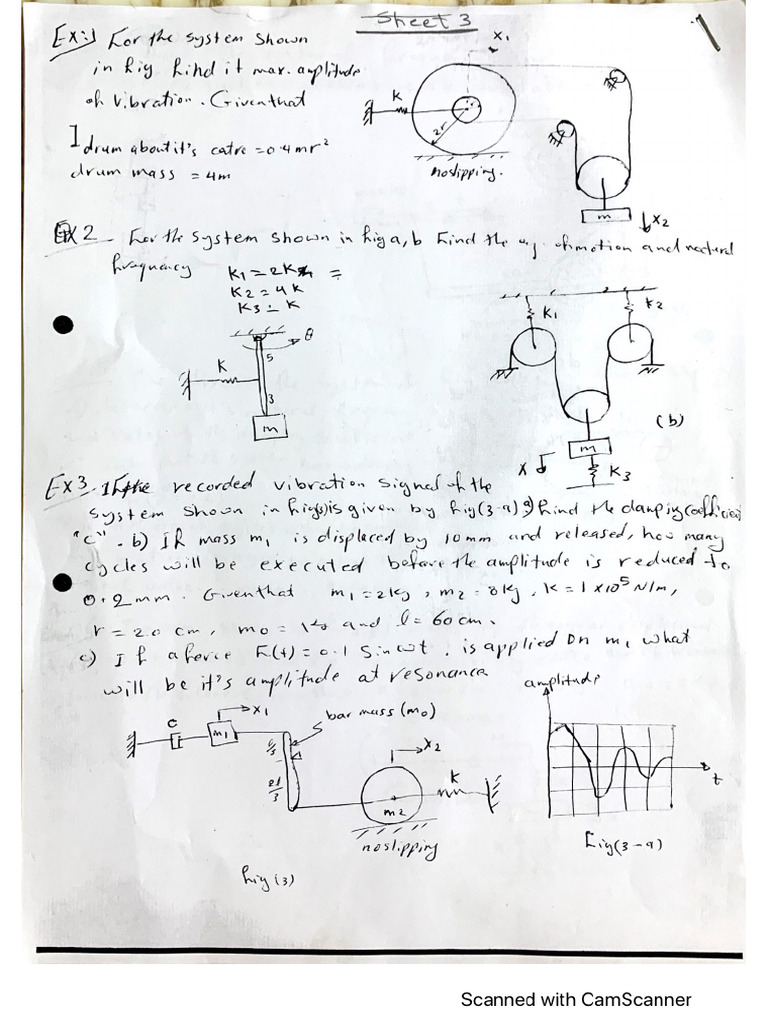 Sheet 3
1
Ex:1 For the system shown
in fig find it max. amplitude
of vibration. Given that
I drum about it's catre = 0.4mr²
drum mass = 4m
x1
K
2r
no slipping.
m
x2
Ex 2 For the system shown in fig a, b Find the eq. of motion and natural
frequency K1 = 2K =
K2 = 4K
K3 = K
θ
K
5
3
m
K1
K2
(b)
m
X
K3
Ex3. If the recorded vibration signal of the
system shown in fig(3) is given by fig(3-a) a) Find the damping coefficient
"c". b) If mass m1 is displaced by 10mm and released, how many
cycles will be executed before the amplitude is reduced to
0.2mm. Given that m1 = 2kg, m2 = 8kg, K = 1×10⁵ N/m,
r = 20 cm, mo = and l = 60cm.
c) If a force F(t) = 0.1 Sin ωt, is applied on m1 what
will be it's amplitude at resonance
C
m1
x1
bar mass (mo)
l/3
2l/3
x2
K
m2
no slipping
fig (3)
amplitude
t
Fig (3-a)
Scanned with CamScanner